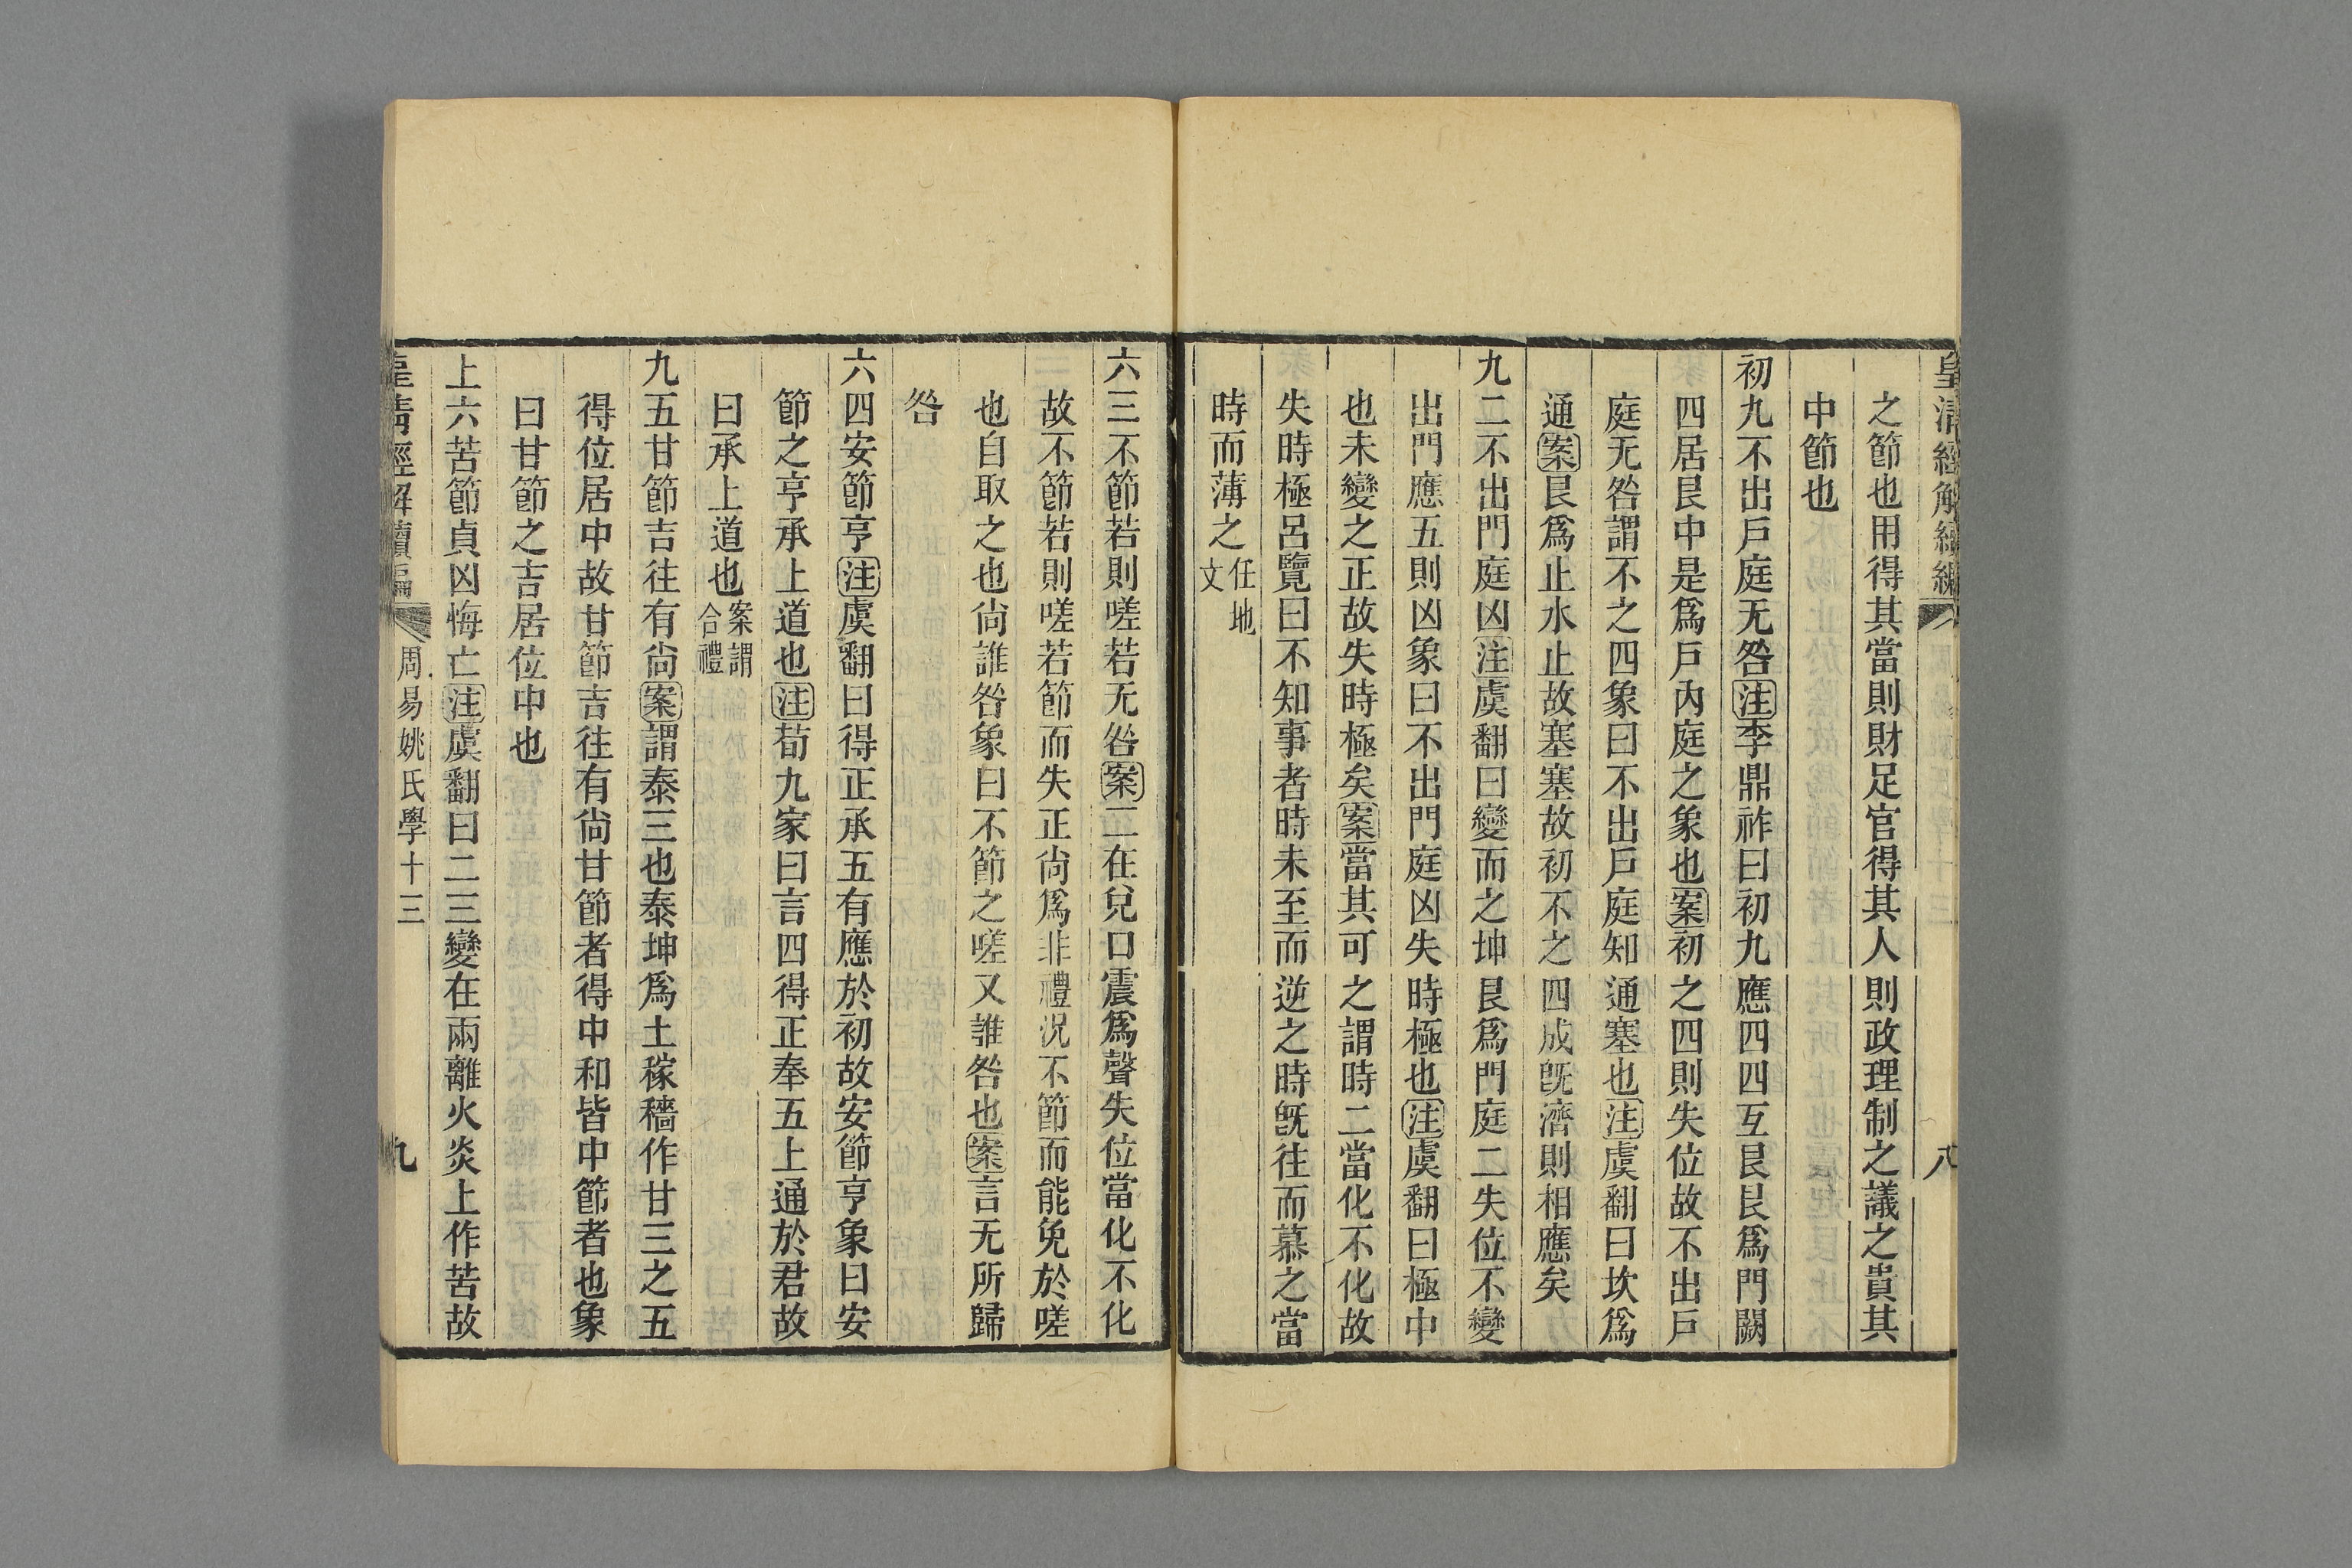 皇清經解續編 八
之節也用得其當則財足官得其人則政理制之議之貴其
中節也
初九不出戶庭无咎注李鼎祚曰初九應四四互艮艮爲門闕
四居艮中是爲戶內庭之象也案初之四則失位故不出戶
庭无咎謂不之四象曰不出戶庭知通塞也注虞翻曰坎爲
通案艮爲止水止故塞塞故初不之四成旣濟則相應矣
九二不出門庭凶注虞翻曰變而之坤艮爲門庭二失位不變
出門應五則凶象曰不出門庭凶失時極也注虞翻曰極中
也未變之正故失時極矣案當其可之謂時二當化不化故
失時極呂覽曰不知事者時未至而逆之時旣往而慕之當
時而薄之任地文
六三不節若則嗟若无咎案二在兌口震爲聲失位當化不化
故不節若則嗟若節而失正尙爲非禮況不節而能免於嗟
也自取之也尙誰咎象曰不節之嗟又誰咎也案言无所歸
咎
六四安節亨注虞翻曰得正承五有應於初故安節亨象曰安
節之亨承上道也注荀九家曰言四得正奉五上通於君故
曰承上道也案謂合禮
九五甘節吉往有尙案謂泰三也泰坤爲土稼穡作甘三之五
得位居中故甘節吉往有尙甘節者得中和皆中節者也象
曰甘節之吉居位中也
上六苦節貞凶悔亡注虞翻曰二三變在兩離火炎上作苦故
皇清經解續編 周易姚氏學十三 九